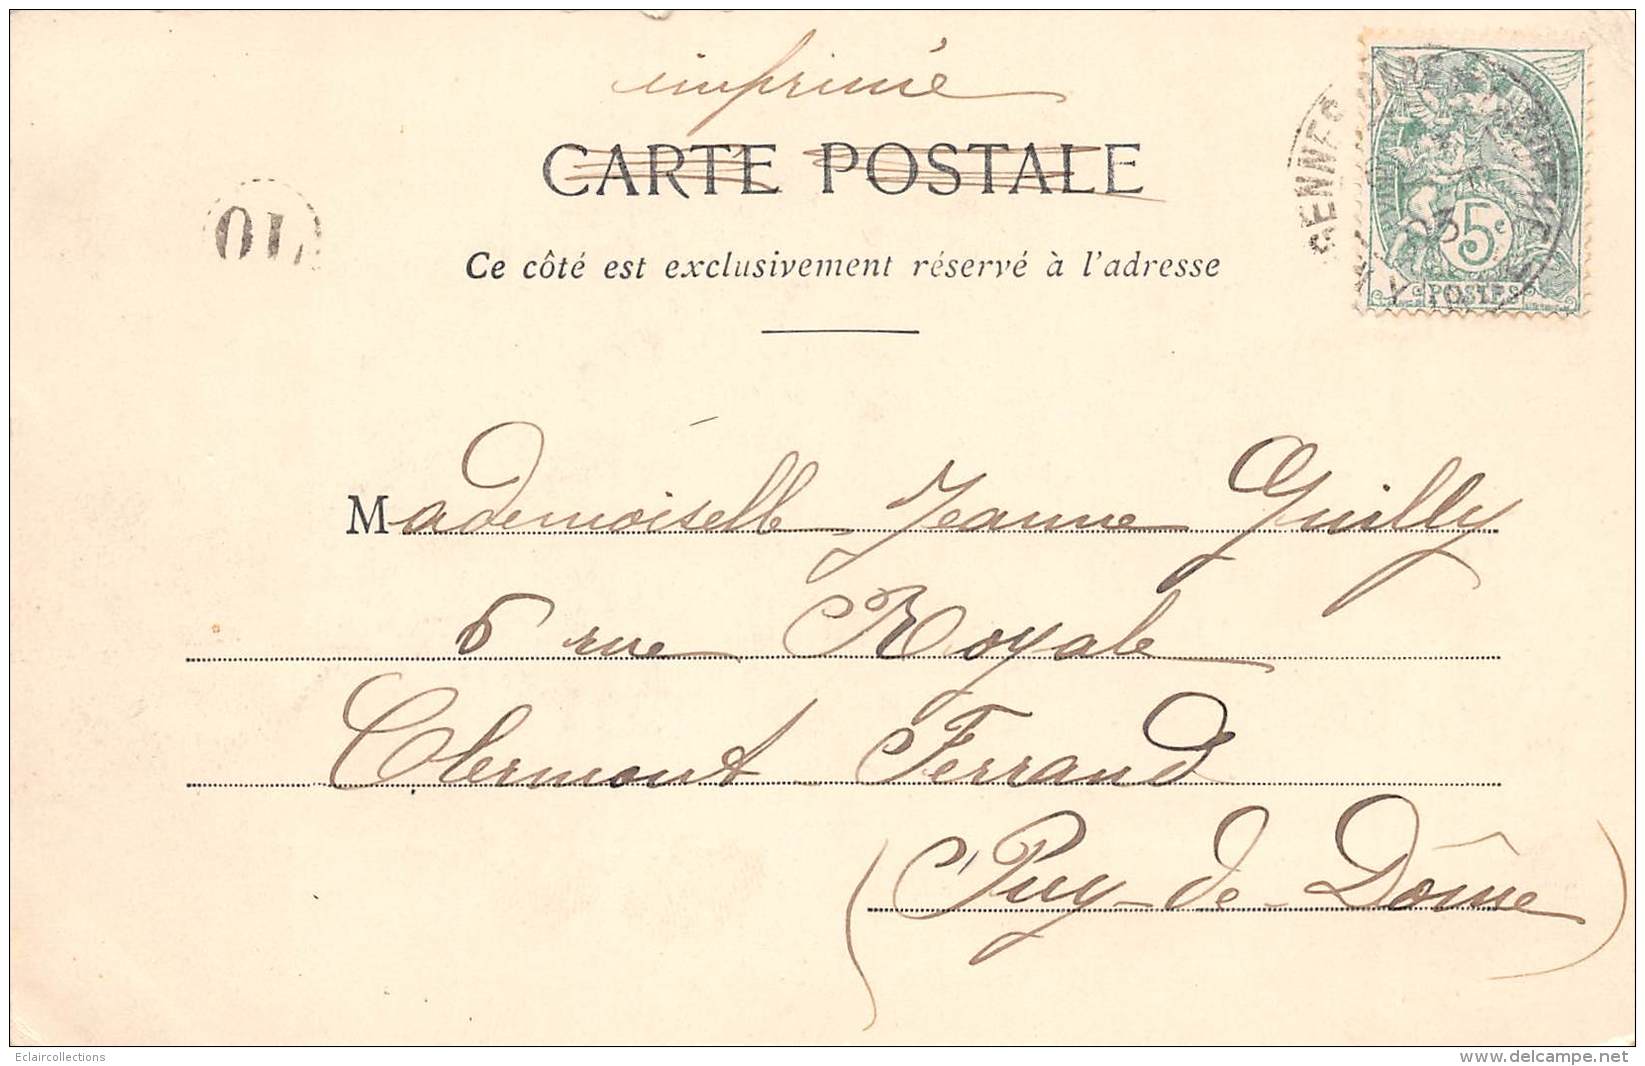 imprimé
CARTE POSTALE
RENNES
03
5c
POSTES
OL
Ce côté est exclusivement réservé à l'adresse
Mademoiselle Jeanne Guilly
6 rue Royale
Clermont Ferrand
(Puy-de-Dôme)
Eclaircollections
delcampe.net